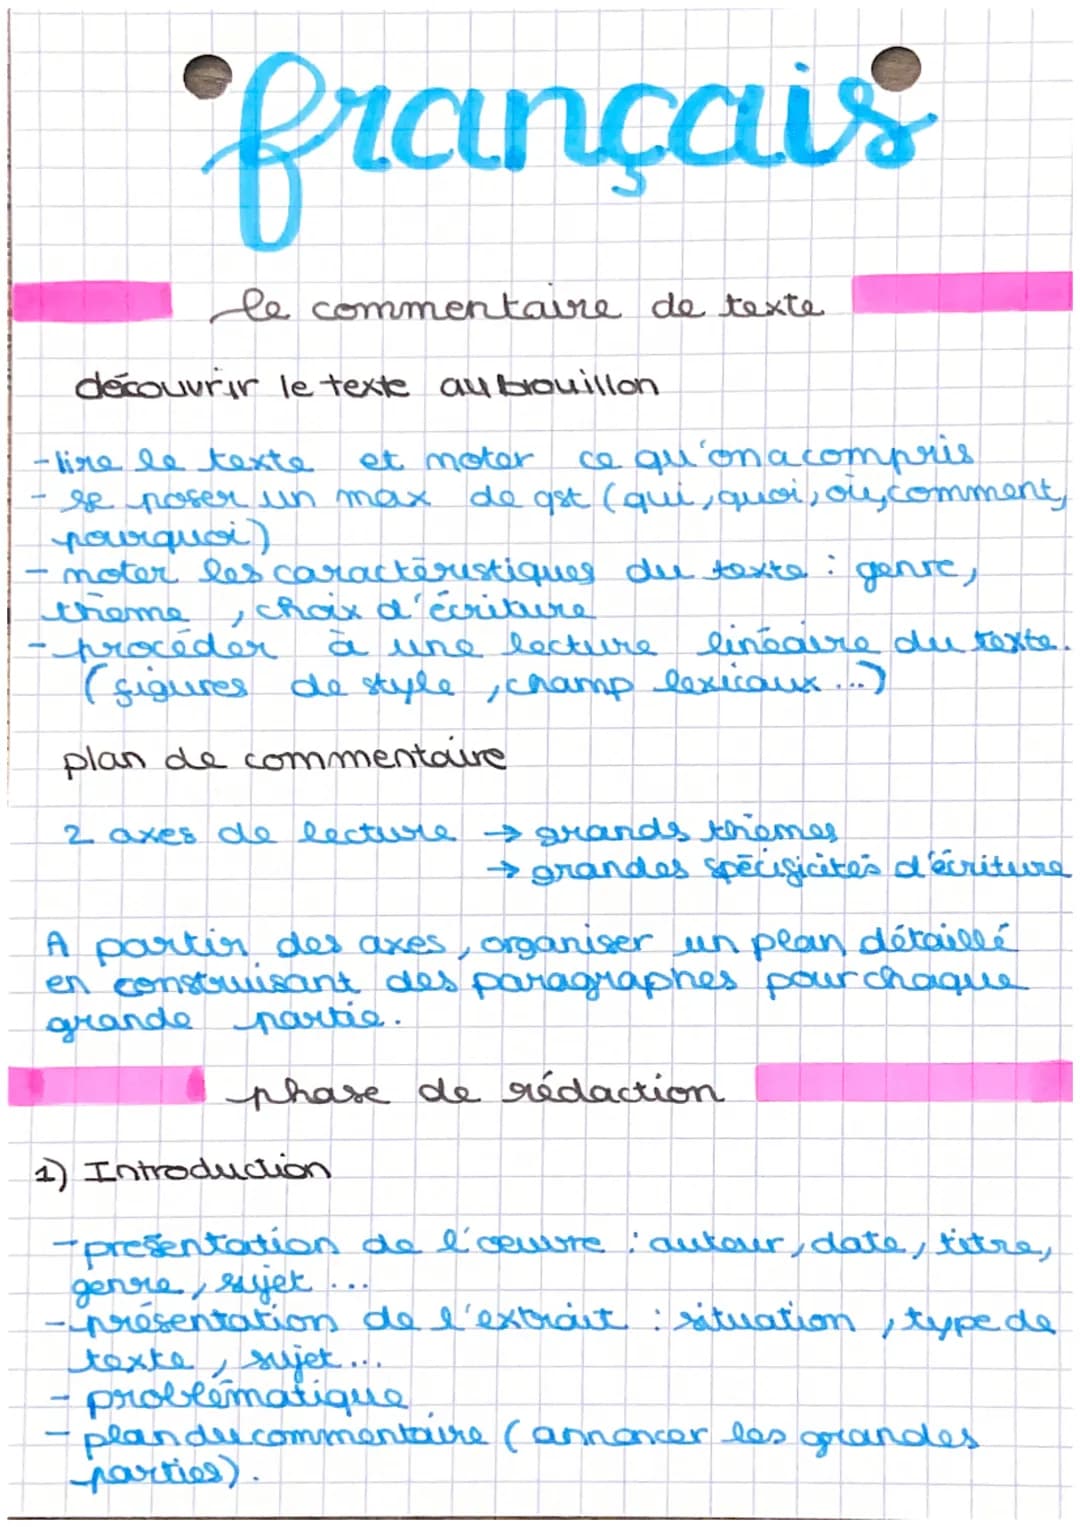 français
le commentaire de texte
découvrir le texte au brouillon
- lire le texte et noter ce qu'on a compris
- se poser un max de qst (qui, quoi, où, comment,
pourquoi)
- noter les caractéristiques du texte : genre,
thème, choix d'écriture
- procéder à une lecture linéaire du texte.
(figures de style, champ lexicaux ...)
plan de commentaire
2 axes de lecture → grands thèmes
→ grandes spécificités d'écriture
A partir des axes, organiser un plan détaillé
en construisant des paragraphes pour chaque
grande partie.
phase de rédaction
1) Introduction
- présentation de l'œuvre : auteur, date, titre,
genre, sujet ...
- présentation de l'extrait : situation, type de
texte, sujet ...
- problématique
- plan du commentaire (annoncer les grandes
parties).